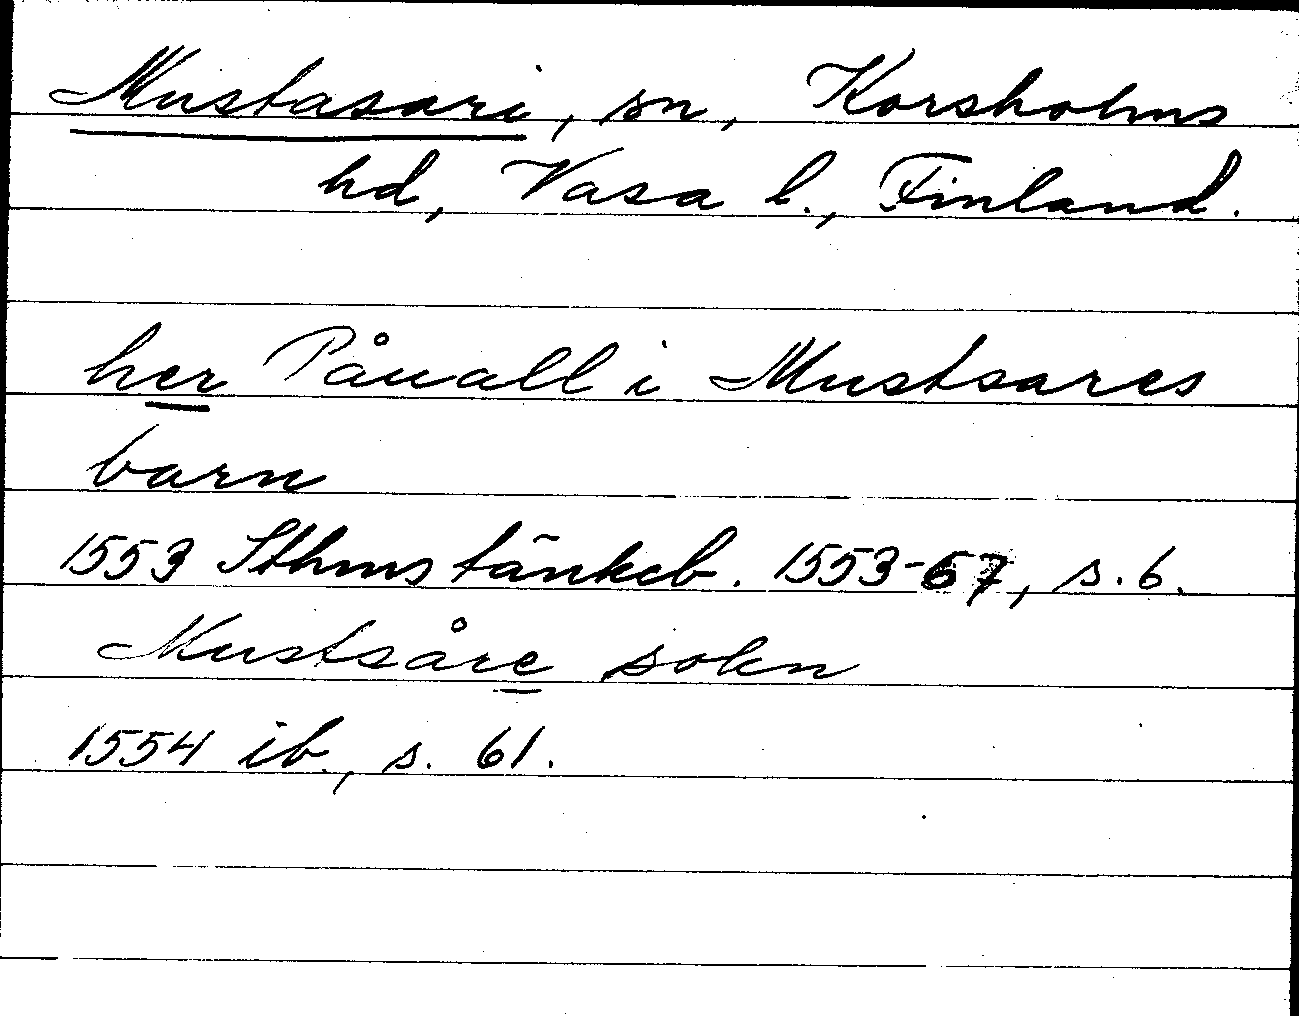 Mustasari, sn, Korsholms
hd, Vasa l., Finland.
her Påuall i Mustsares
barn
1553 Sthms tänkeb. 1553-67, s. 6.
Mustsåre sokn
1554 ib., s. 61.